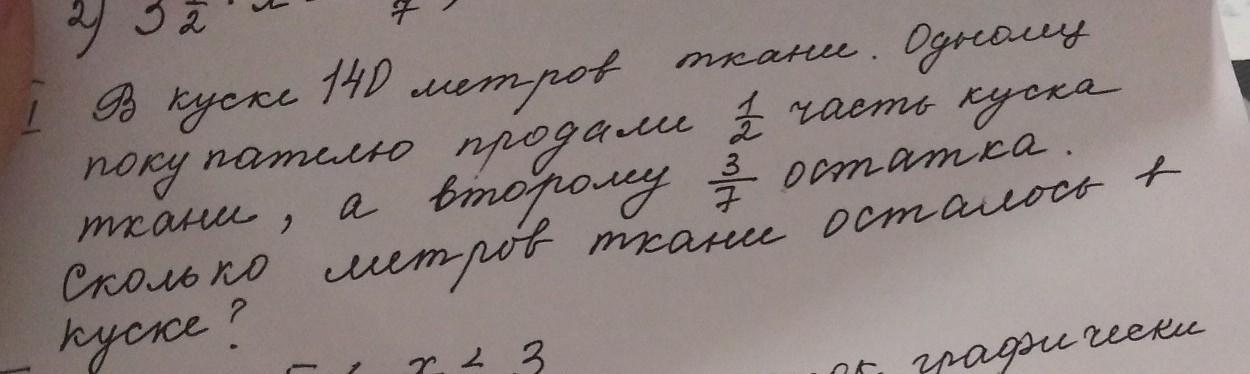 2) 3 1/2 · x 7
I В куске 140 метров ткани. Одному
покупателю продали 1/2 часть куска
ткани, а второму 3/7 остатка.
Сколько метров ткани осталось в
куске?
x < 3 графически